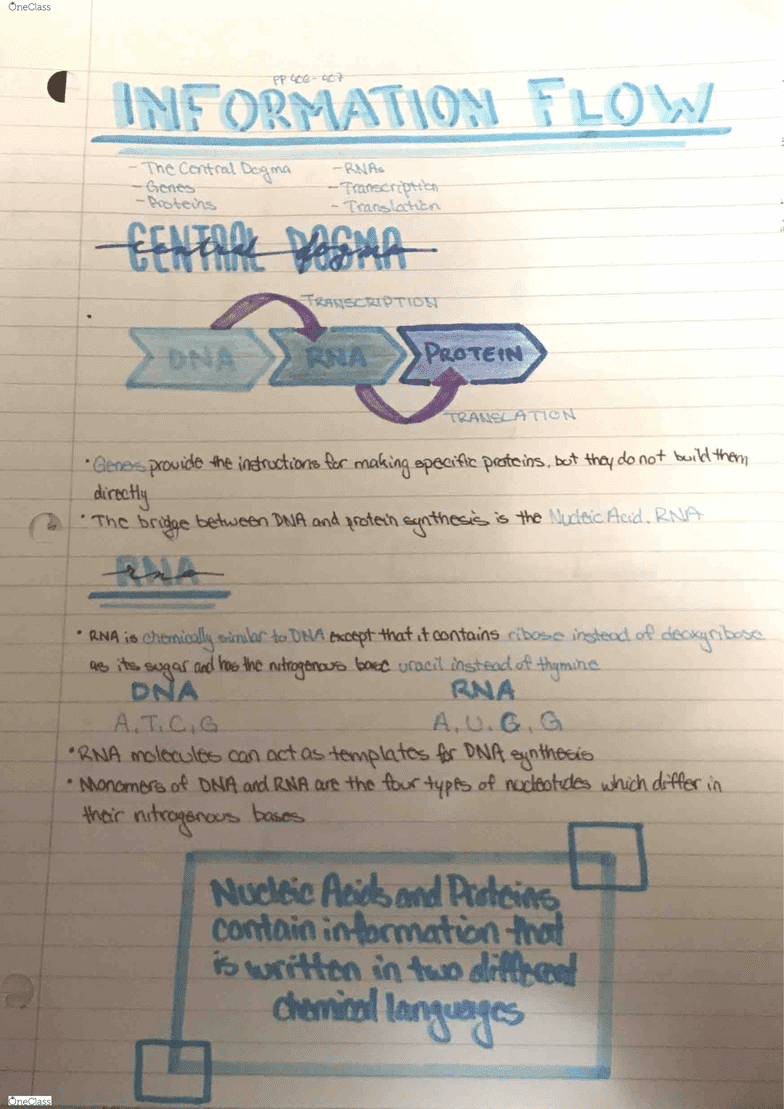 OneClass
PP 406-407
INFORMATION FLOW
- The Central Dogma - RNAs
- Genes - Transcription
- Proteins - Translation
CENTRAL DOGMA
central dogma
TRANSCRIPTION
DNA RNA PROTEIN
TRANSLATION
• Genes provide the instructions for making specific proteins, but they do not build them
directly
• The bridge between DNA and protein synthesis is the Nucleic Acid. RNA
RNA
rna
• RNA is chemically similar to DNA except that it contains ribose instead of deoxyribose
as its sugar and has the nitrogenous base uracil instead of thymine
DNA RNA
A, T, C, G A, U, G, G
• RNA molecules can act as templates for DNA synthesis
• Monomers of DNA and RNA are the four types of nucleotides which differ in
their nitrogenous bases
Nucleic Acids and Proteins
contain information that
is written in two different
chemical languages
OneClass